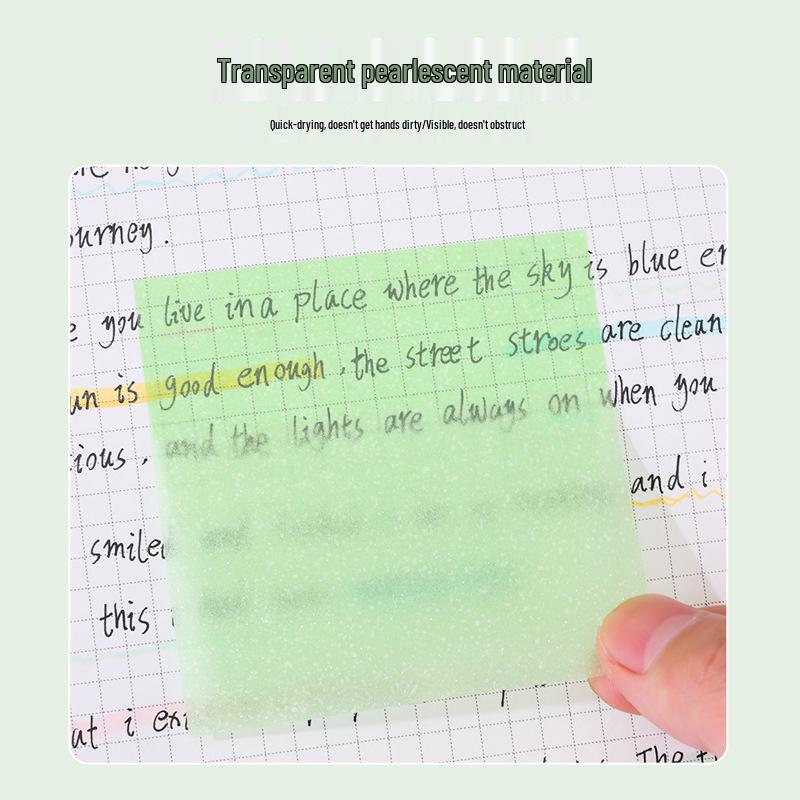 Transparent pearlescent material
Quick-drying, doesn't get hands dirty/Visible, doesn't obstruct
ourney.
you live in a place where the sky is blue
is good enough, the street stroes are clean
ious, and the lights are always on when you
and i
smiled
this
at i
The